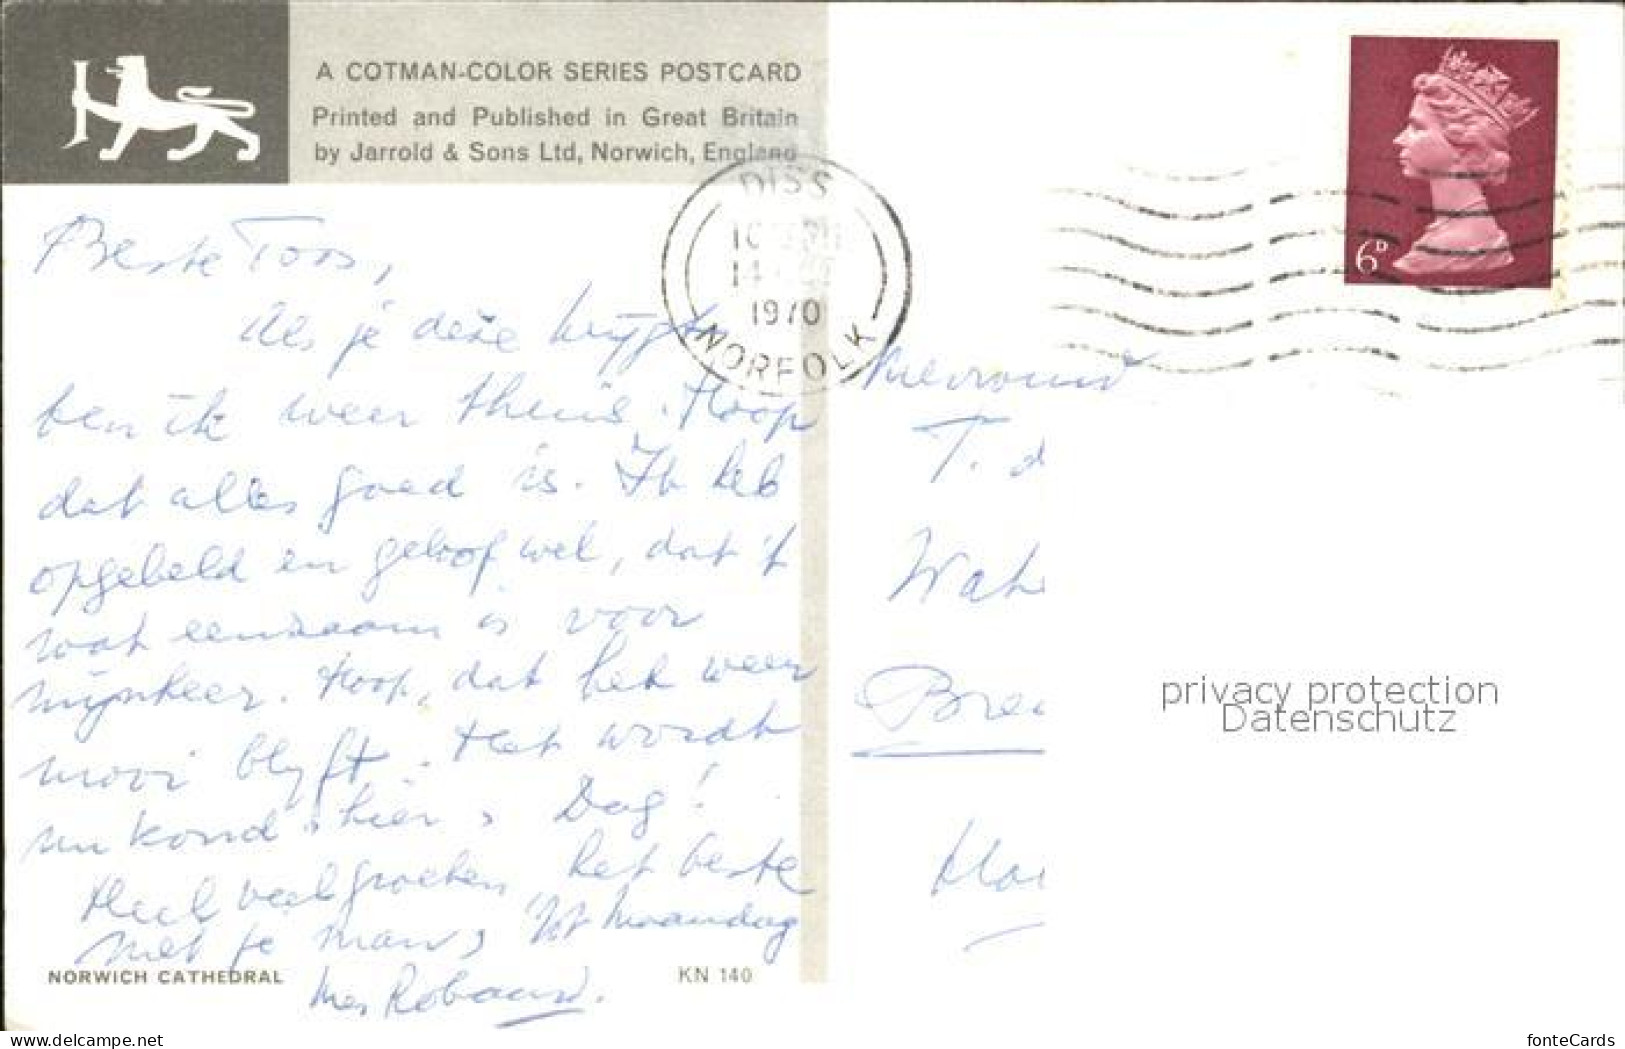 A COTMAN-COLOR SERIES POSTCARD
Printed and Published in Great Britain
by Jarrold & Sons Ltd, Norwich, England
DISS
1970
NORFOLK
6D
Beste Toos,
Als je deze krijgt
ben ik weer thuis. Hoop
dat alles goed is. Ik heb
opgebeld en geloof wel, dat 't
wat eenzaam is voor
mijnheer. Hoop, dat het weer
mooi blijft. Het wordt
nu koud hier, Dag!
Heel veel groeten, het beste
met je man, tot Maandag
Mevrouw
T. d
Wat
Bre
privacy protection
Datenschutz
NORWICH CATHEDRAL
KN 140
www.delcampe.net
fonteCards